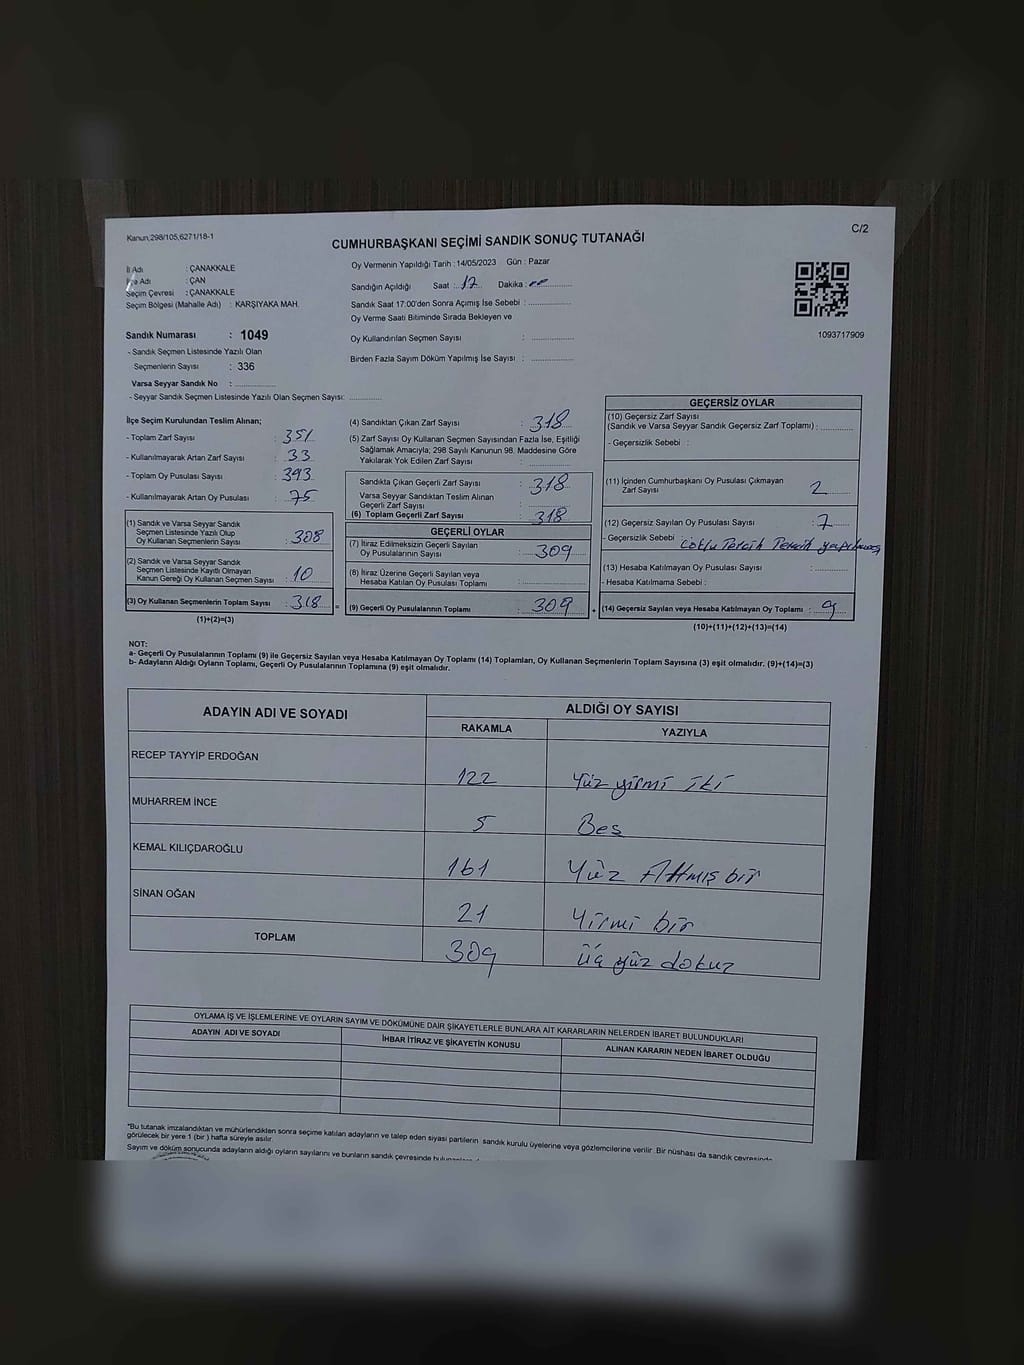 Kanun,298/105,6271/18-1
C/2
CUMHURBAŞKANI SEÇİMİ SANDIK SONUÇ TUTANAĞI
İl Adı : ÇANAKKALE
İlçe Adı : ÇAN
Seçim Çevresi : ÇANAKKALE
Seçim Bölgesi (Mahalle Adı) : KARŞIYAKA MAH.
Oy Vermenin Yapıldığı Tarih :14/05/2023 Gün : Pazar
Sandığın Açıldığı Saat : 17 Dakika :
Sandık Saat 17:00'den Sonra Açımış İse Sebebi :
Oy Verme Saati Bitiminde Sırada Bekleyen ve
Oy Kullandırılan Seçmen Sayısı :
Birden Fazla Sayım Döküm Yapılmış İse Sayısı :
1093717909
Sandık Numarası : 1049
- Sandık Seçmen Listesinde Yazılı Olan
Seçmenlerin Sayısı : 336
Varsa Seyyar Sandık No :
- Seyyar Sandık Seçmen Listesinde Yazılı Olan Seçmen Sayısı:
İlçe Seçim Kurulundan Teslim Alınan;
- Toplam Zarf Sayısı : 351
- Kullanılmayarak Artan Zarf Sayısı : 33
- Toplam Oy Pusulası Sayısı : 393
- Kullanılmayarak Artan Oy Pusulası : 75
(1) Sandık ve Varsa Seyyar Sandık
Seçmen Listesinde Yazılı Olup
Oy Kullanan Seçmenlerin Sayısı : 308
(2) Sandık ve Varsa Seyyar Sandık
Seçmen Listesinde Kayıtlı Olmayan
Kanun Gereği Oy Kullanan Seçmen Sayısı : 10
(3) Oy Kullanan Seçmenlerin Toplam Sayısı : 318 =
(1)+(2)=(3)
(4) Sandıktan Çıkan Zarf Sayısı : 318
(5) Zarf Sayısı Oy Kullanan Seçmen Sayısından Fazla İse, Eşitliği
Sağlamak Amacıyla; 298 Sayılı Kanunun 98. Maddesine Göre
Yakılarak Yok Edilen Zarf Sayısı :
Sandıkta Çıkan Geçerli Zarf Sayısı : 318
Varsa Seyyar Sandıktan Teslim Alınan
Geçerli Zarf Sayısı :
(6) Toplam Geçerli Zarf Sayısı : 318
GEÇERLİ OYLAR
(7) İtiraz Edilmeksizin Geçerli Sayılan
Oy Pusulalarının Sayısı : 309
(8) İtiraz Üzerine Geçerli Sayılan veya
Hesaba Katılan Oy Pusulası Toplamı :
(9) Geçerli Oy Pusulalarının Toplamı : 309 +
GEÇERSİZ OYLAR
(10) Geçersiz Zarf Sayısı
(Sandık ve Varsa Seyyar Sandık Geçersiz Zarf Toplamı) :
- Geçersizlik Sebebi :
(11) İçinden Cumhurbaşkanı Oy Pusulası Çıkmayan
Zarf Sayısı : 2
(12) Geçersiz Sayılan Oy Pusulası Sayısı : 7
- Geçersizlik Sebebi : Çoklu Tercih Tercih yapılmamış
(13) Hesaba Katılmayan Oy Pusulası Sayısı :
- Hesaba Katılmama Sebebi :
(14) Geçersiz Sayılan veya Hesaba Katılmayan Oy Toplamı : 9
(10)+(11)+(12)+(13)=(14)
NOT:
a- Geçerli Oy Pusulalarının Toplamı (9) ile Geçersiz Sayılan veya Hesaba Katılmayan Oy Toplamı (14) Toplamları, Oy Kullanan Seçmenlerin Toplam Sayısına (3) eşit olmalıdır. (9)+(14)=(3)
b- Adayların Aldığı Oyların Toplamı, Geçerli Oy Pusulalarının Toplamına (9) eşit olmalıdır.
ADAYIN ADI VE SOYADI
ALDIĞI OY SAYISI
RAKAMLA YAZIYLA
RECEP TAYYİP ERDOĞAN 122 Yüz yirmi iki
MUHARREM İNCE 5 Beş
KEMAL KILIÇDAROĞLU 161 Yüz Altmış bir
SİNAN OĞAN 21 Yirmi bir
TOPLAM 309 Üç yüz dokuz
OYLAMA İŞ VE İŞLEMLERİNE VE OYLARIN SAYIM VE DÖKÜMÜNE DAİR ŞİKAYETLERLE BUNLARA AİT KARARLARIN NELERDEN İBARET BULUNDUKLARI
ADAYIN ADI VE SOYADI İHBAR İTİRAZ VE ŞİKAYETİN KONUSU ALINAN KARARIN NEDEN İBARET OLDUĞU
*Bu tutanak imzalandıktan ve mühürlendikten sonra seçime katılan adayların ve talep eden siyasi partilerin sandık kurulu üyelerine veya gözlemcilerine verilir. Bir nüshası da sandık çevresinde
görülecek bir yere 1 (bir) hafta süreyle asılır.
Sayım ve döküm sonucunda adayların aldığı oyların sayılarını ve bunların sandık çevresinde